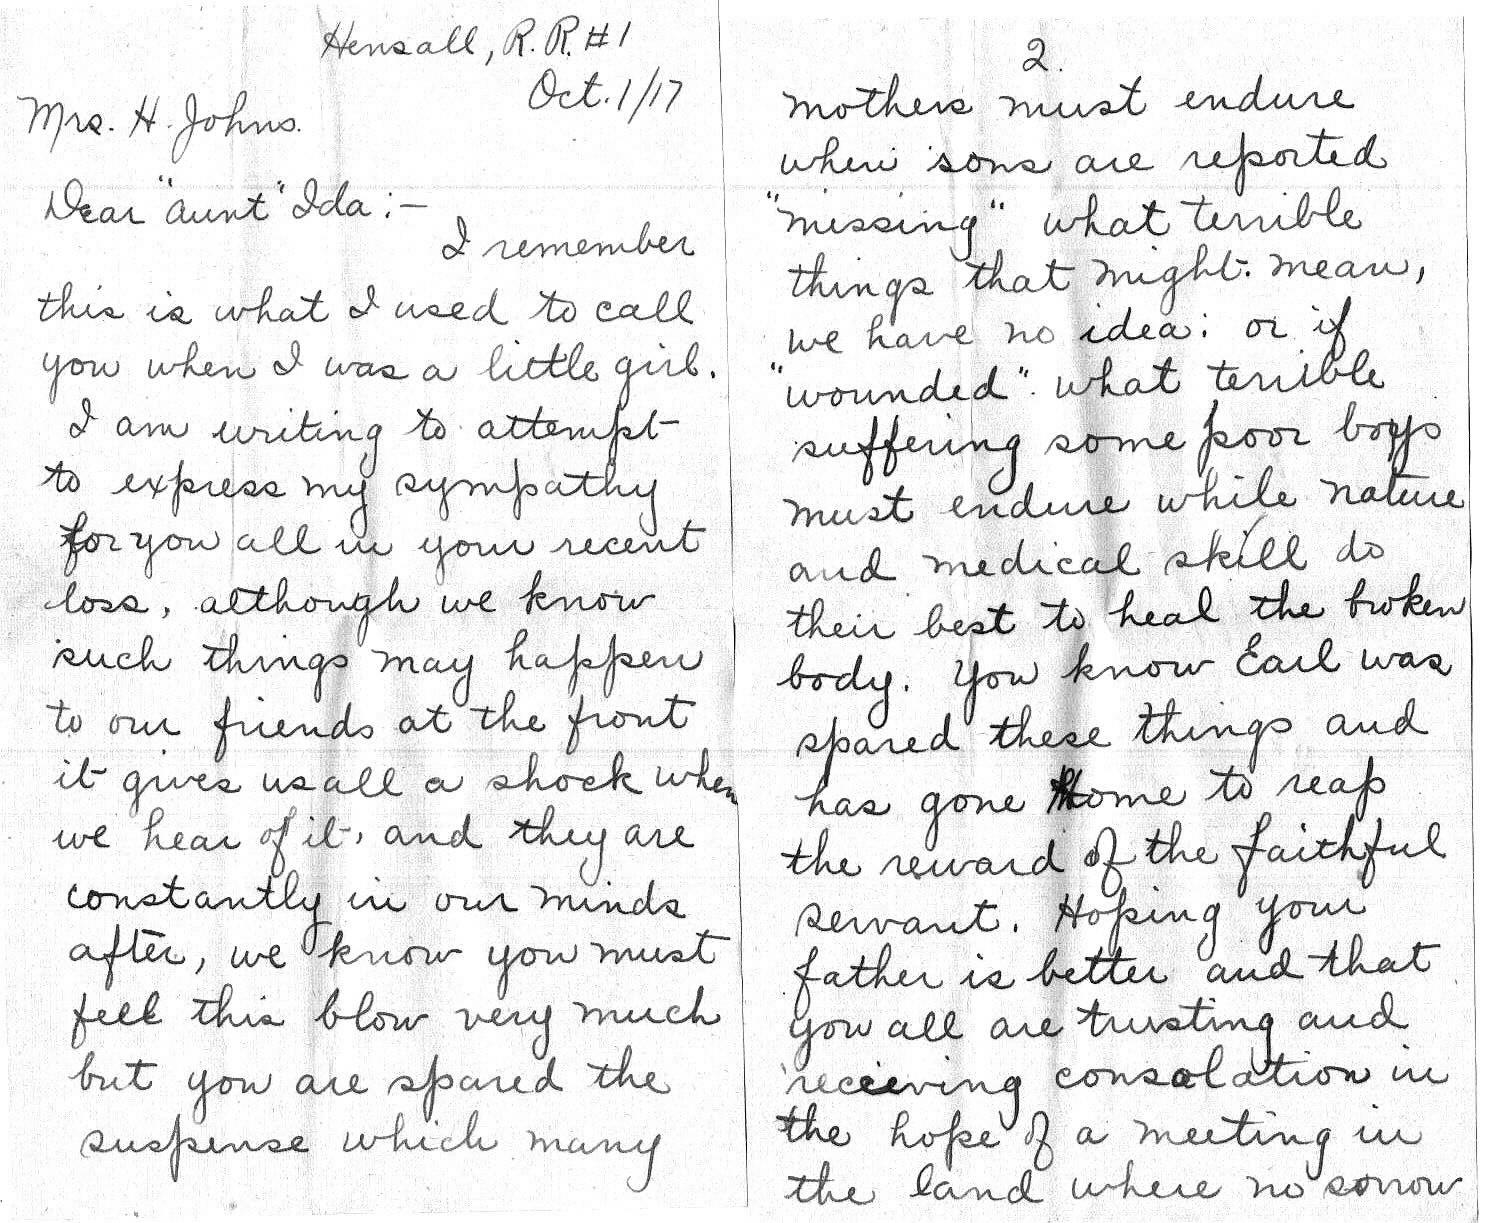 Hensall, R.R.#1
Oct. 1/17
Mrs. H. Johns.
Dear "Aunt" Ida:—
I remember
this is what I used to call
you when I was a little girl.
I am writing to attempt
to express my sympathy
for you all in your recent
loss, although we know
such things may happen
to our friends at the front
it gives us all a shock when
we hear of it, and they are
constantly in our minds
after, we know you must
feel this blow very much
but you are spared the
suspense which many
2.
mothers must endure
when sons are reported
"missing" what terrible
things that might mean,
we have no idea: or if
"wounded" what terrible
suffering some poor boys
must endure while nature
and medical skill do
their best to heal the broken
body. You know Earl was
spared these things and
has gone Home to reap
the reward of the faithful
servant. Hoping your
father is better and that
you all are trusting and
receiving consolation in
the hope of a meeting in
the land where no sorrow